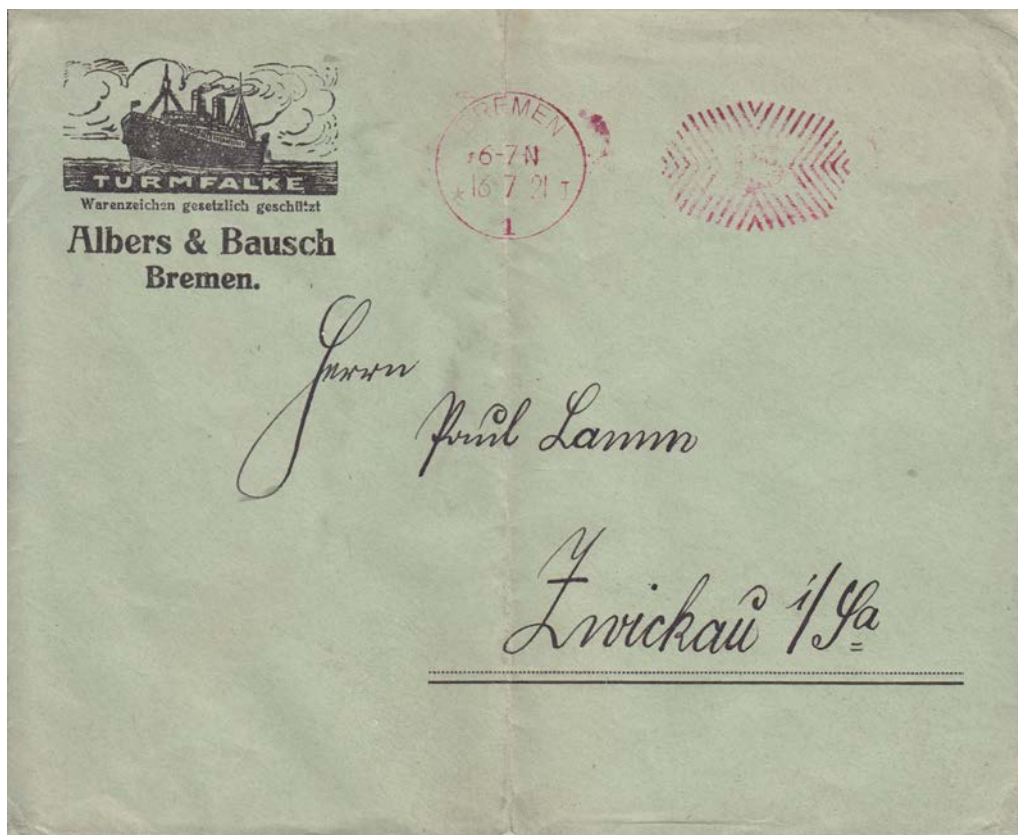 TURMFALKE
Warenzeichen gesetzlich geschützt
Albers & Bausch
Bremen.
BREMEN
6-7 N
16 7 21
1
Herrn
Paul Lamm
Zwickau i/Sa